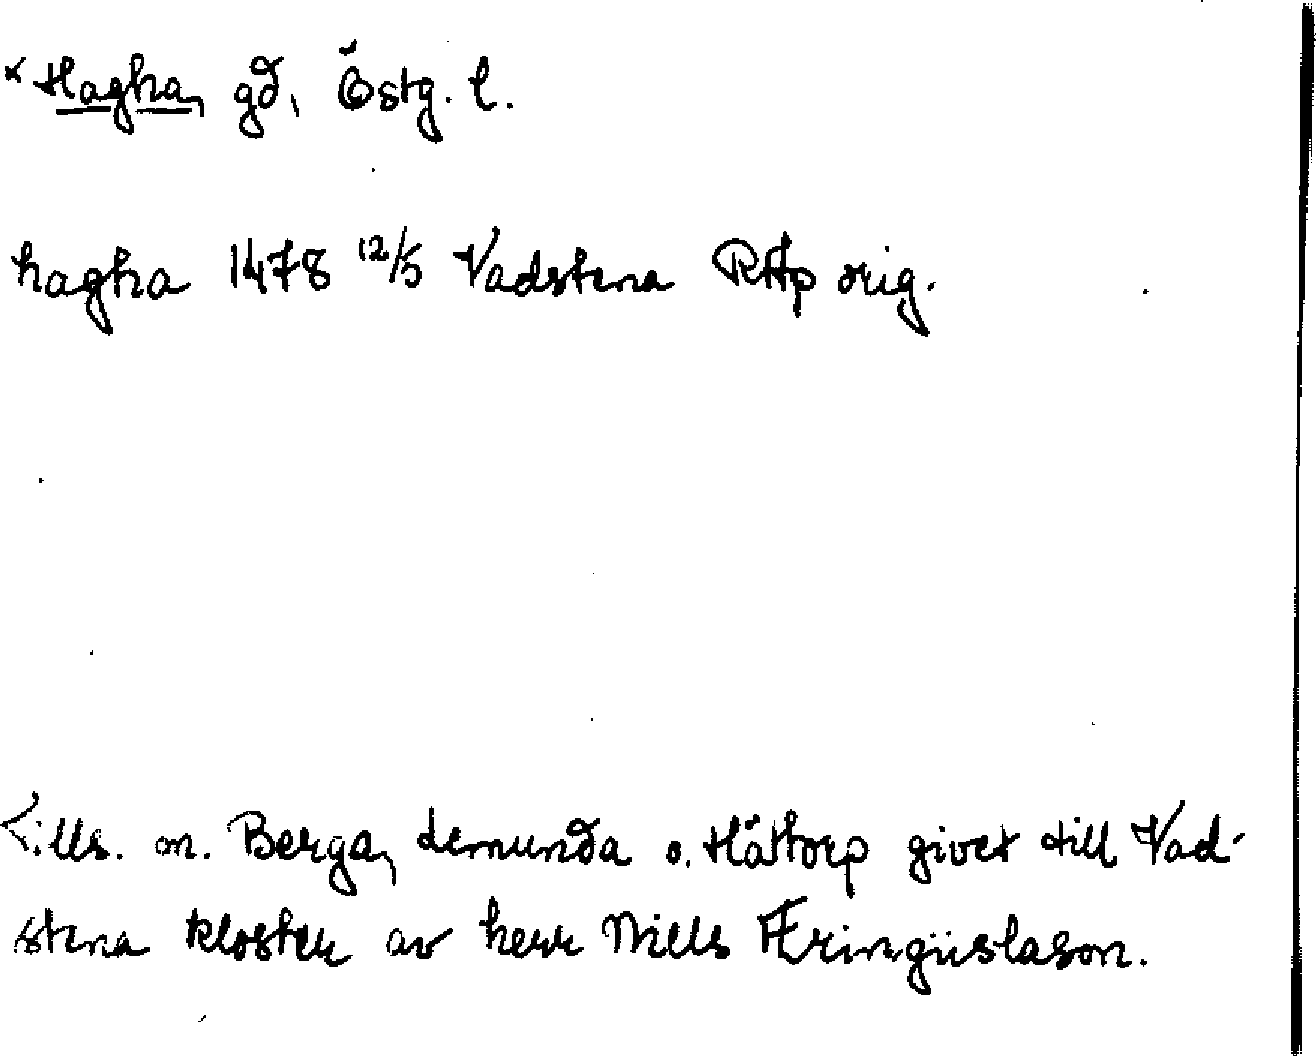 * Hagha, gd, Östg. l.
hagha 1478 12/5 Vadstena RAp orig.
Tills. m. Berga, Lemunda o. Håttorp givet till Vad-
stena kloster av herr Nills Æringüslason.